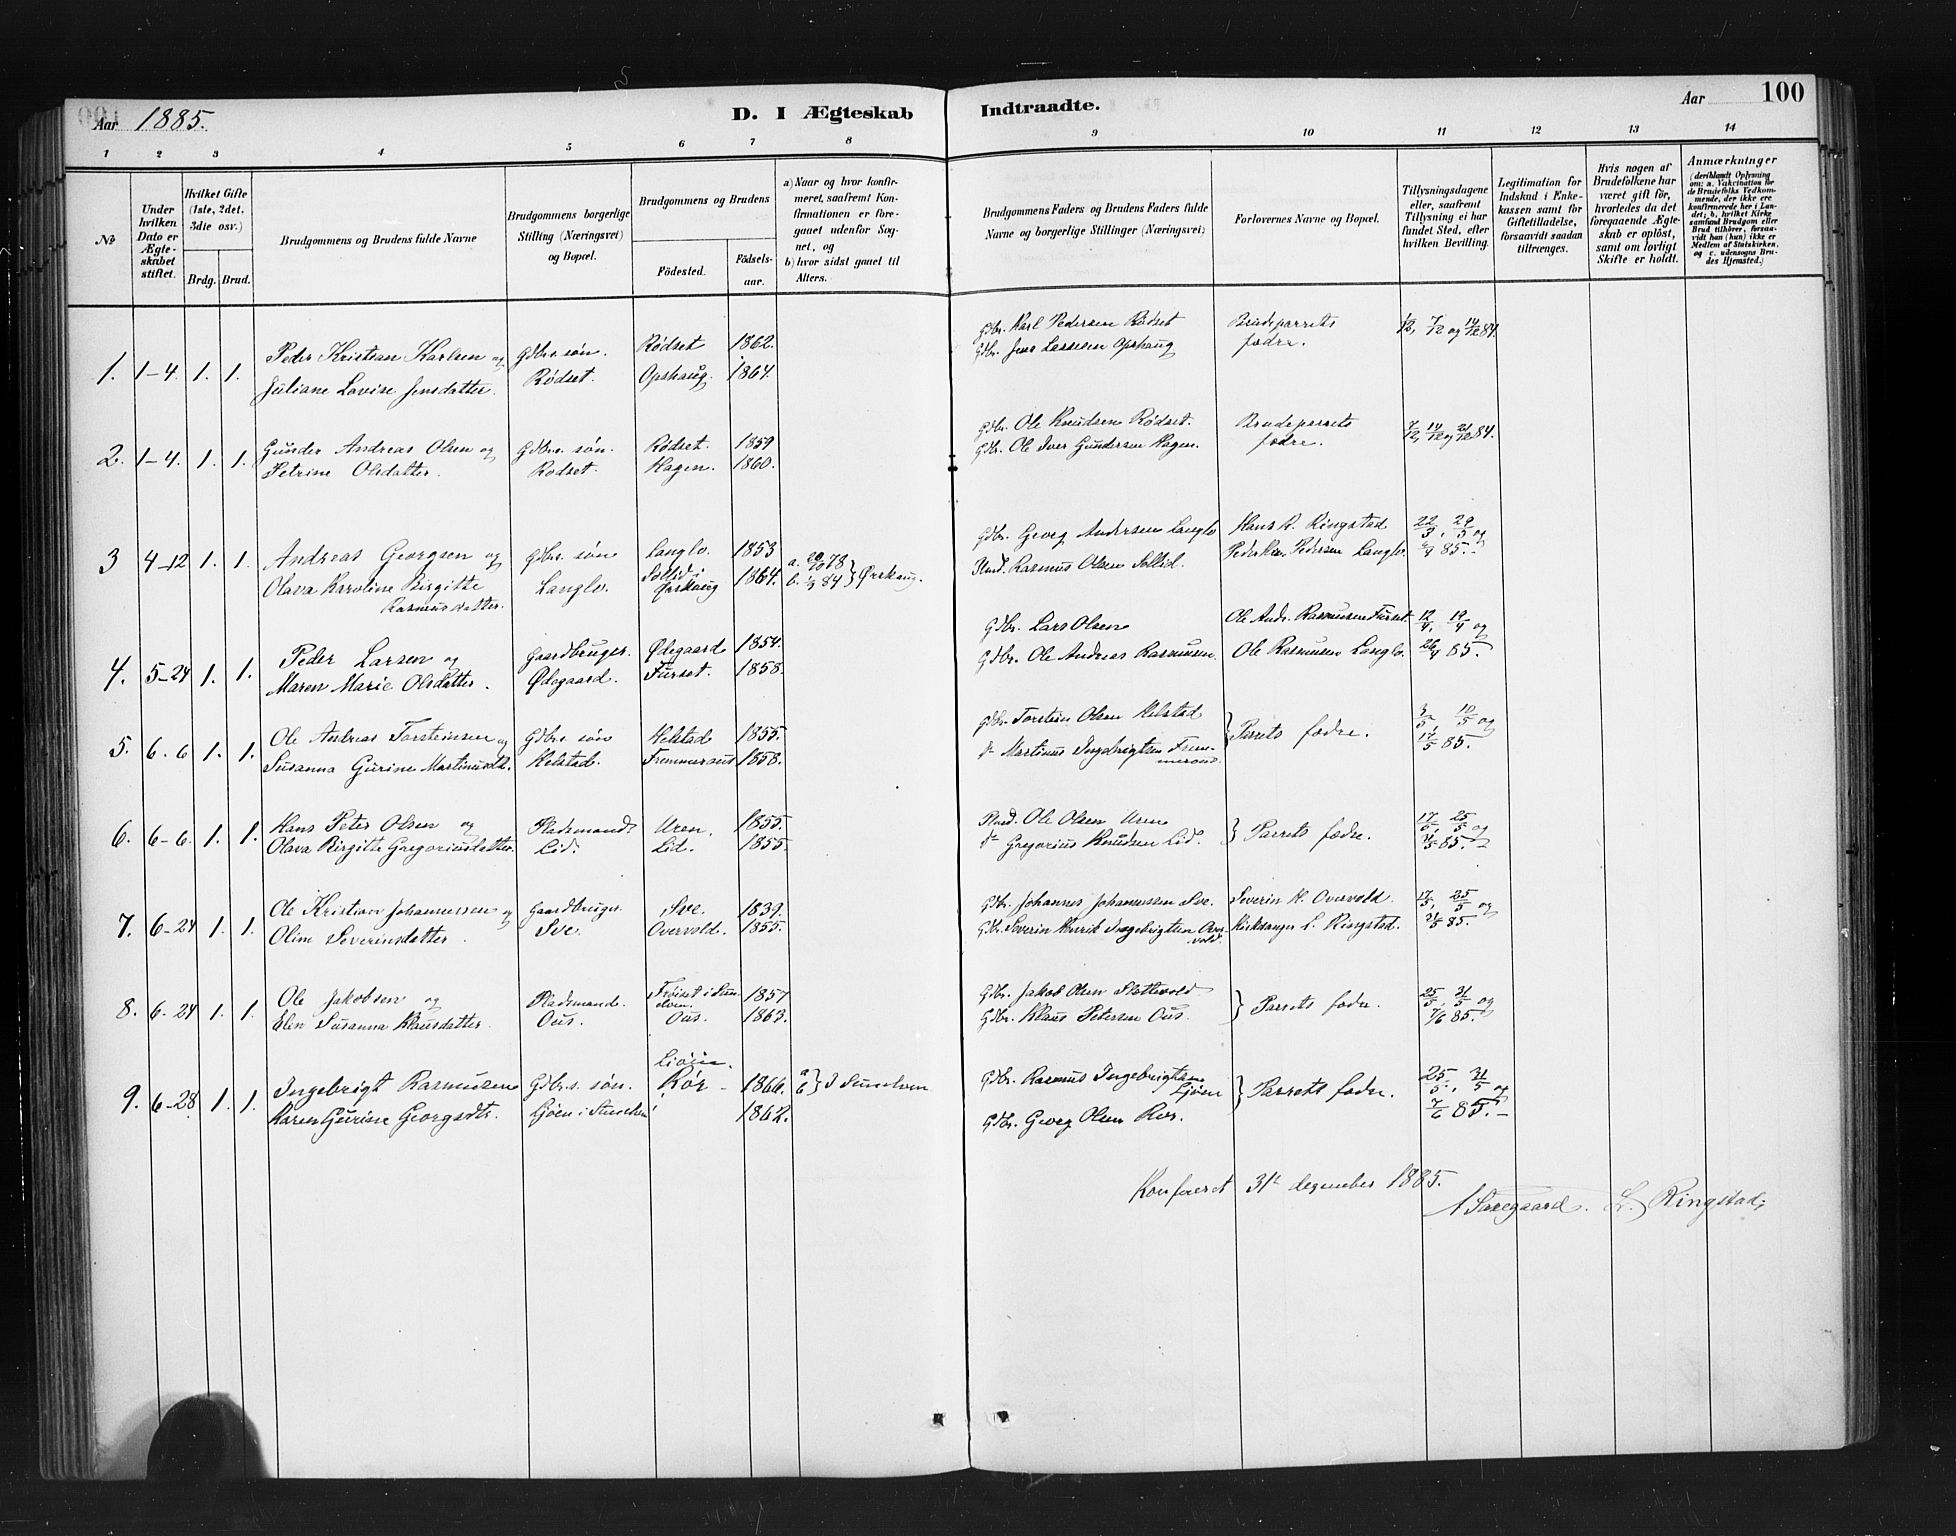 Aar 1885.
D. I Ægteskab Indtraadte.
Aar
100
1 2 3 4 5 6 7 8 9 10 11 12 13 14
№
Under hvilken Dato er Ægteskabet stiftet.
Hvilket Gifte (1ste, 2det, 3die osv.)
Brdg. Brud.
Brudgommens og Brudens fulde Navne
Brudgommens borgerlige Stilling (Næringsvei) og Bopæl.
Brudgommens og Brudens
Fødested. Fødselsaar.
a) Naar og hvor konfirmeret, saafremt Konfirmationen er foregaaet udenfor Sognet, og
b) hvor sidst gaaet til Alters.
Brudgommens Faders og Brudens Faders fulde Navne og borgerlige Stillinger (Næringsvei)
Forlovernes Navne og Bopæl.
Tillysningsdagene eller, saafremt Tillysning ei har fundet Sted, efter hvilken Bevilling.
Legitimation for Indskud i Enkekassen samt for Giftetilladelse, forsaavidt saadan tiltrænges.
Hvis nogen af Brudefolkene har været gift før, hvorledes da det foregaaende Ægteskab er opløst, samt om lovligt Skifte er holdt.
Anmærkninger (deriblandt Oplysning om: a. Vakcination for de Brudefolks Vedkommende, der ikke ere konfirmerede her i Landet; b. hvilket Kirkesamfund Brudgom eller Brud tilhører, forsaavidt han (hun) ikke er Medlem af Statskirken, og c. udensogns Brudes Hjemsted.)
1. 1-4. 1. 1. Peder Kristian Karlsen og Gdbrs. søn. Rødset 1862. Gdbr. Karl Pedersen Rødset Brudeparrets 1/12, 7/12 og 14/12 84.
Juliane Lovise Jensdatter. Rødset. Opshaug. 1864. Gdbr. Jens Larsen Opshaug fædre.
2. 1-4. 1. 1. Gunder Andreas Olsen og Gdbrs. søn. Rødset. 1859 Gdbr. Ole Knudsen Rødset. Brudeparrets 7/12, 14/12 og 21/12 84.
Petrine Olsdatter. Rødset. Hagen. 1860. Gdbr. Ole Iver Gundersen Hagen. fædre.
3 4-12 1. 1. Andreas Georgsen og Gdbrs. søn Langlo. 1853 Gdbr. Georg Andersen Langlo Hans R. Ringstad 22/3, 29/3 og
Olava Karoline Birgitte Langlo. Sollid i Ørskaug 1864. b. 84 } Ørskaug. Rasmus Olsen Sollid. Pedersen Langlo. 85.
Rasmusdatter.
4. 5-24 1. 1. Peder Larsen og Gaardbruger. Ødegaard 1854. Gdbr. Lars Olsen Ole Andr. Rasmussen Furset 12/4, 19/4 og
Maren Marie Olsdatter. Ødegaard. Furset. 1858. Gdbr. Ole Andreas Rasmussen. Ole Rasmussen Langlo. 26/4 85.
5. 6-6 1. 1. Ole Andreas Torsteinsen og Gdbrs. søn Helstad 1855. Gdbr. Torstein Olsen Helstad } Parrets fædre. 3/5, 10/5 og
Susanna Gurine Martinusdt. Helstad. 1858. do Martinus Ingebrigtsen Fremmersund. 17/5 85.
6. 6-6 1. 1. Hans Peter Olsen og Pladsmand. Uren. 1855. Plmd. Ole Olsen Uren } Parrets fædre. 17/5, 25/5 og
Olava Birgitte Gregoriusdatter. Lid. Lid. 1855. do Gregorius Knudsen Lid. 31/5 85.
7. 6-24 1. 1. Ole Kristian Johannessen og Gaardbruger. Sve. 1839. Gdbr. Johannes Johannessen Sve. Severin H. Overvold. 17/5, 25/5 og
Oline Severinsdatter. Sve. Overvold. 1855. Gdbr. Severin Henrik Ingebrigtsen Overvold. Kirkesanger L. Ringstad. 31/5 85.
8. 6-24 1. 1. Ole Jakobsen og Pladsmand. 1857 Gdbr. Jakob Olsen } Parrets fædre. 25/5, 31/5 og
Elen Susanna Klausdatter. Ous. Ous. 1863. Gdbr. Klaus Petersen Ous. 7/6 85.
9. 6-28 1. 1. Ingebrigt Rasmussen Gdbrs. søn. Liöen. Rör 1866. a b } I Sunelven Gdbr. Rasmus Ingebrigtsen Ljöen } Parrets fædre. 25/5, 31/5 og
Karen Gurine Georgsdtr. Ljöen i Sunelven 1862. Gdbr. Georg Olsen Rör. 7/6 85.
Konfereret 31te desember 1885.
L. Ringstad.